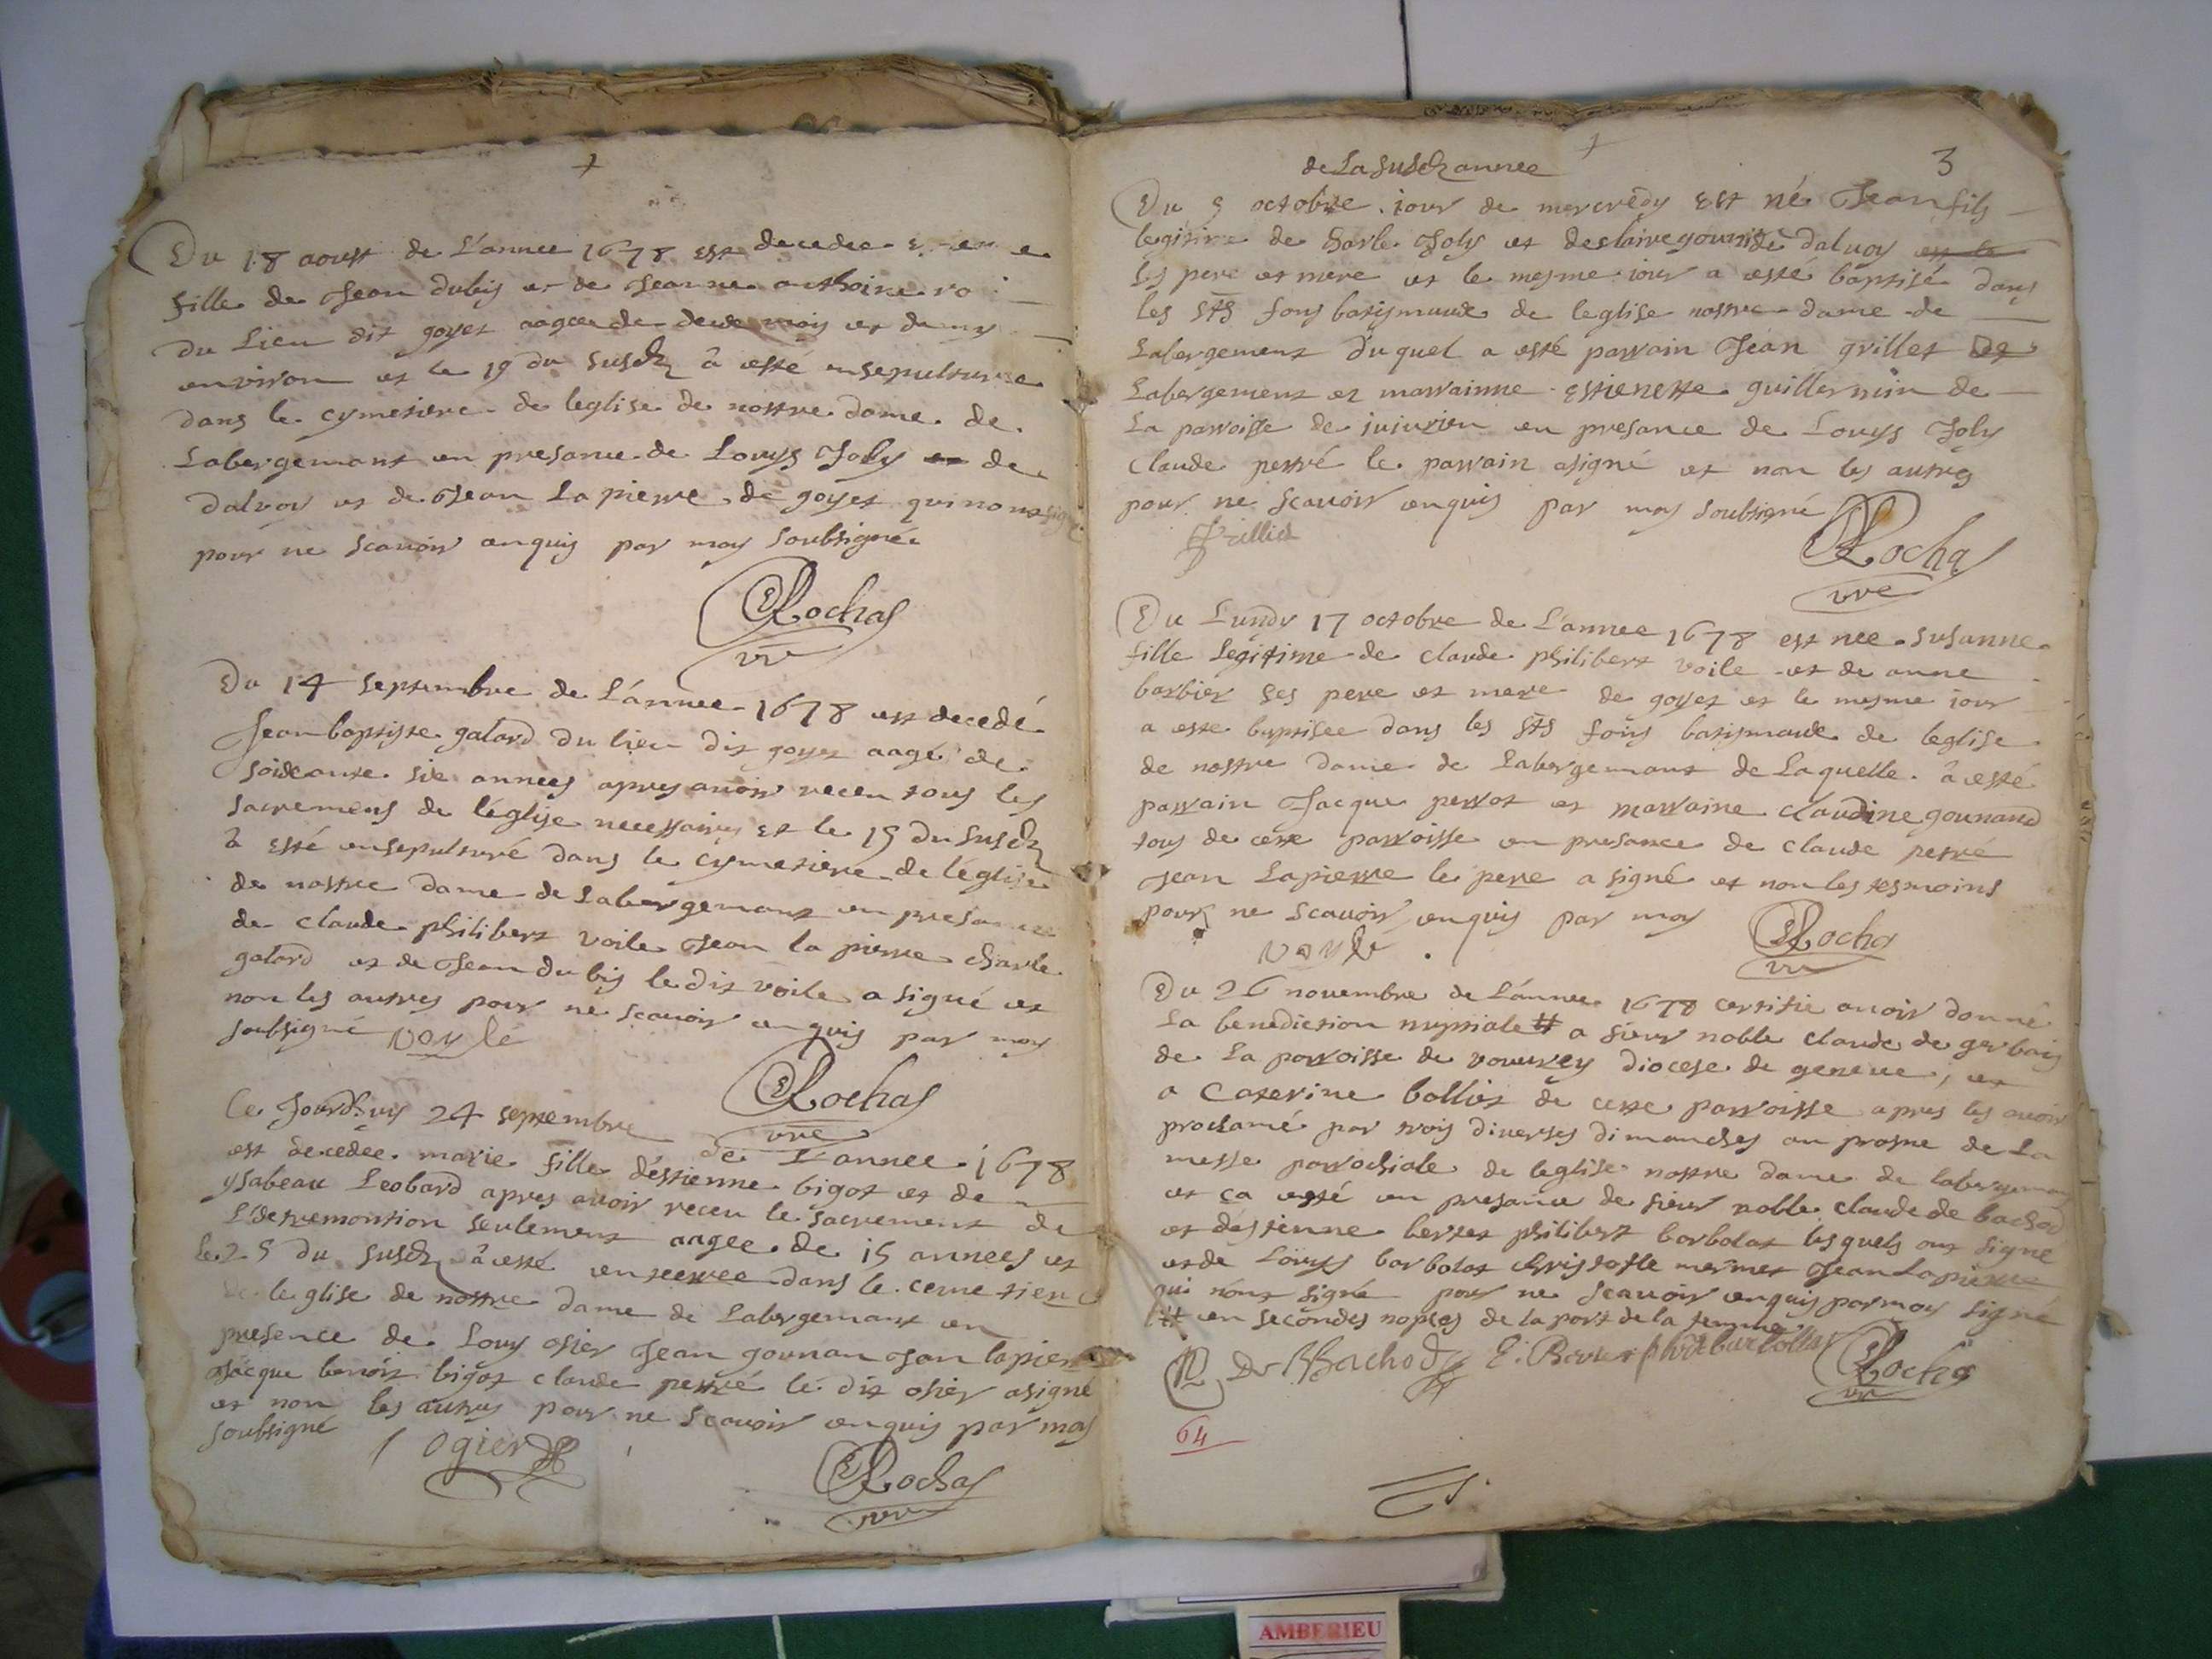 Du 18 aoust de L'annee 1678 est decedee
fille de Jean dubis et de Jeanne anthoine
du Lieu dit goyet aagee de deux mois et demy
environ et le 19 du susdt â esté ensepulturee
dans le cymetiere de leglise de nostre dame de
Labergemant en presance de Louys Joly de
dalvoy et de Jean La pierre de goyet qui nont signé
pour ne scavoir enquis par moy soubsigné
Rochas
vre
Du 14 septembre de L'annee 1678 est decedé
Jean baptiste galard du lieu dit goyet aagé de
soixante six annees apres avoir receu tous les
sacremens de l'églisze necessaires et le 15 du susdt
â esté ensepulturé dans le cymetiere de l'église
de nostre dame de Labergemant en presance
de claude philibert voile Jean la pierre charle
galard et de Jean du bis le dit voile a signé et
non les autres pour ne scavoir enquis par moy
soubsigné voyle
Rochas
vre
Ce Jourdhuy 24 septembre de L'annee 1678
est decedee marie fille d'estienne bigot et de
ysabeau Leobard apres avoir receu le sacrement de
L'estremontion seulement aagee de 15 annees et
le 25 du susdt â esté enterree dans le cemetiere
de leglise de nostre dame de Labergemant en
presence de Louy osier Jean gounan Jan lapierre
Jacque benoit bigot claude perré le dit osier asigné
et non les autres pour ne scavoir enquis par moy
soubsigné
l Ogier
Rochas
vre
3
de La susdt annee
Du 5 octobre jour de mercredy est né Jean fils
legitime de charle Joly et de claire dalvoy
ses pere et mere et le mesme jour a esté baptisé dans
les sts fons batismaux de leglise nostre dame de
Labergement duquel a esté parrain Jean grillet de
Labergement et marrainne estienette guillermin de
La parroisse de jujurieu en presance de Louys Joly
claude perré le parrain asigné et non les autres
pour ne scavoir enquis par moy soubsigné
Grilliet
Rochas
vre
Du Lundy 17 octobre de L'annee 1678 est nee susanne
fille Légitime de claude philibert voile et de anne
barbier ses pere et mere de goyet et le mesme jour
a esté baptisee dans les sts fons batismaux de leglise
de nostre dame de Labergemant de Laquelle â esté
parrain Jacque perrot et marraine claudine gounand
tous de cette parroisse en presance de claude perré
Jean Lapierre le pere a signé et non les tesmoins
pour ne scavoir enquis par moy
voyle
Rochas
vre
Du 26 novembre de L'annee 1678 certifie avoir donné
La benediction nuptiale # a sieur noble claude de gerbais
de La parroisse de vouurey diocese de geneve, et
a Caterine bolliet de cette parroisse apres les avoir
proclamé par trois diverses dimanches au prosne de La
messe parrochiale de leglise nostre dame de labergemant
et ça esté en presance de sieur noble claude de bachod
et d'estienne bertet philibert barbolat lesquels ont signé
et de Louys barbolat christofle mermet Jean Lapierre
qui nont signé pour ne scavoir enquis par moy signé
# en secondes nopces de la part de la femme
De Bachod
Rochas
vre
64
AMBERIEU